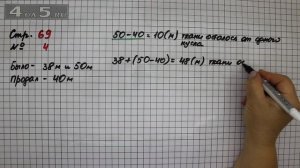 4 dU 5. RU
Стр. 69
№ 4
Было - 38м и 50м
Продал - 40м
50-40=10(м) ткани осталось от одного
куска
38+(50-40)=48(м) ткани ос